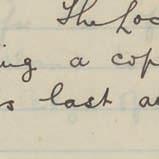 The Loc
ing a cop
s last a